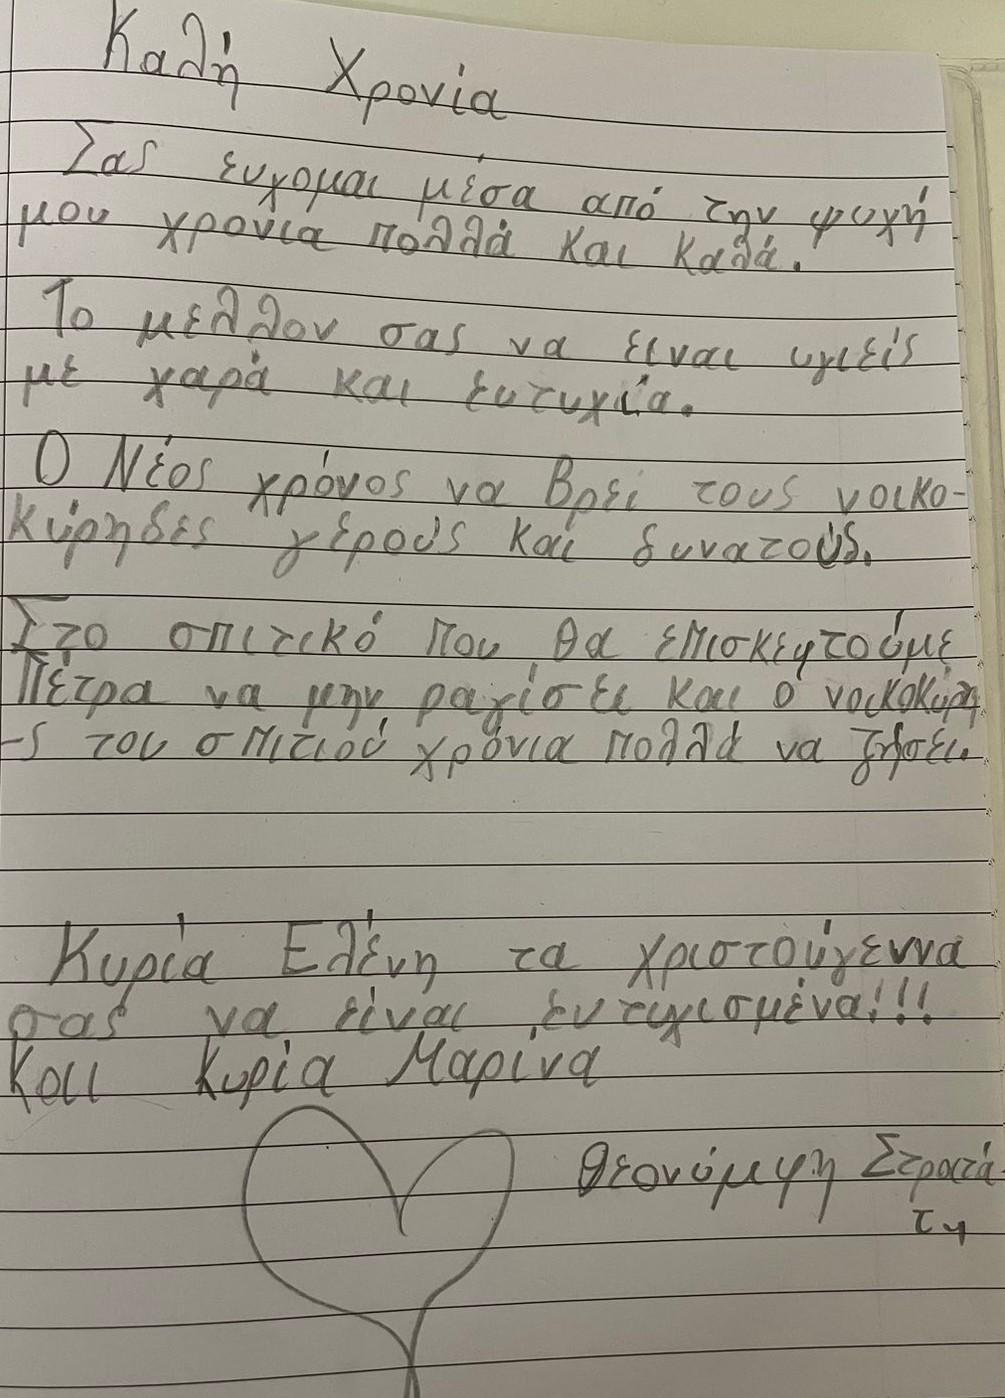 Καλή Χρονία
Σας ευχομαι μέσα από την ψυχή
μου χρόνια πολλά και καλά.
Το μέλλον σας να ειναι υγιείς
με χαρά και ευτυχία.
Ο Νέος χρόνος να βρεί τους νοικο-
κύρηδες γέρούς και δυνατούς.
Στο σπιτικό που θα επισκεφτούμε
Πέτρα να μην ραγίσει και ο νοικοκύρη
-ς του σπιτιού χρόνια πολλά να ζήσει.
Κυρία Ελένη τα χριστούγεννα
σας να είναι ευτιχισμένα!!!
Και Κυρία Μαρίνα
Θεονύμφη Στρατά-
τη